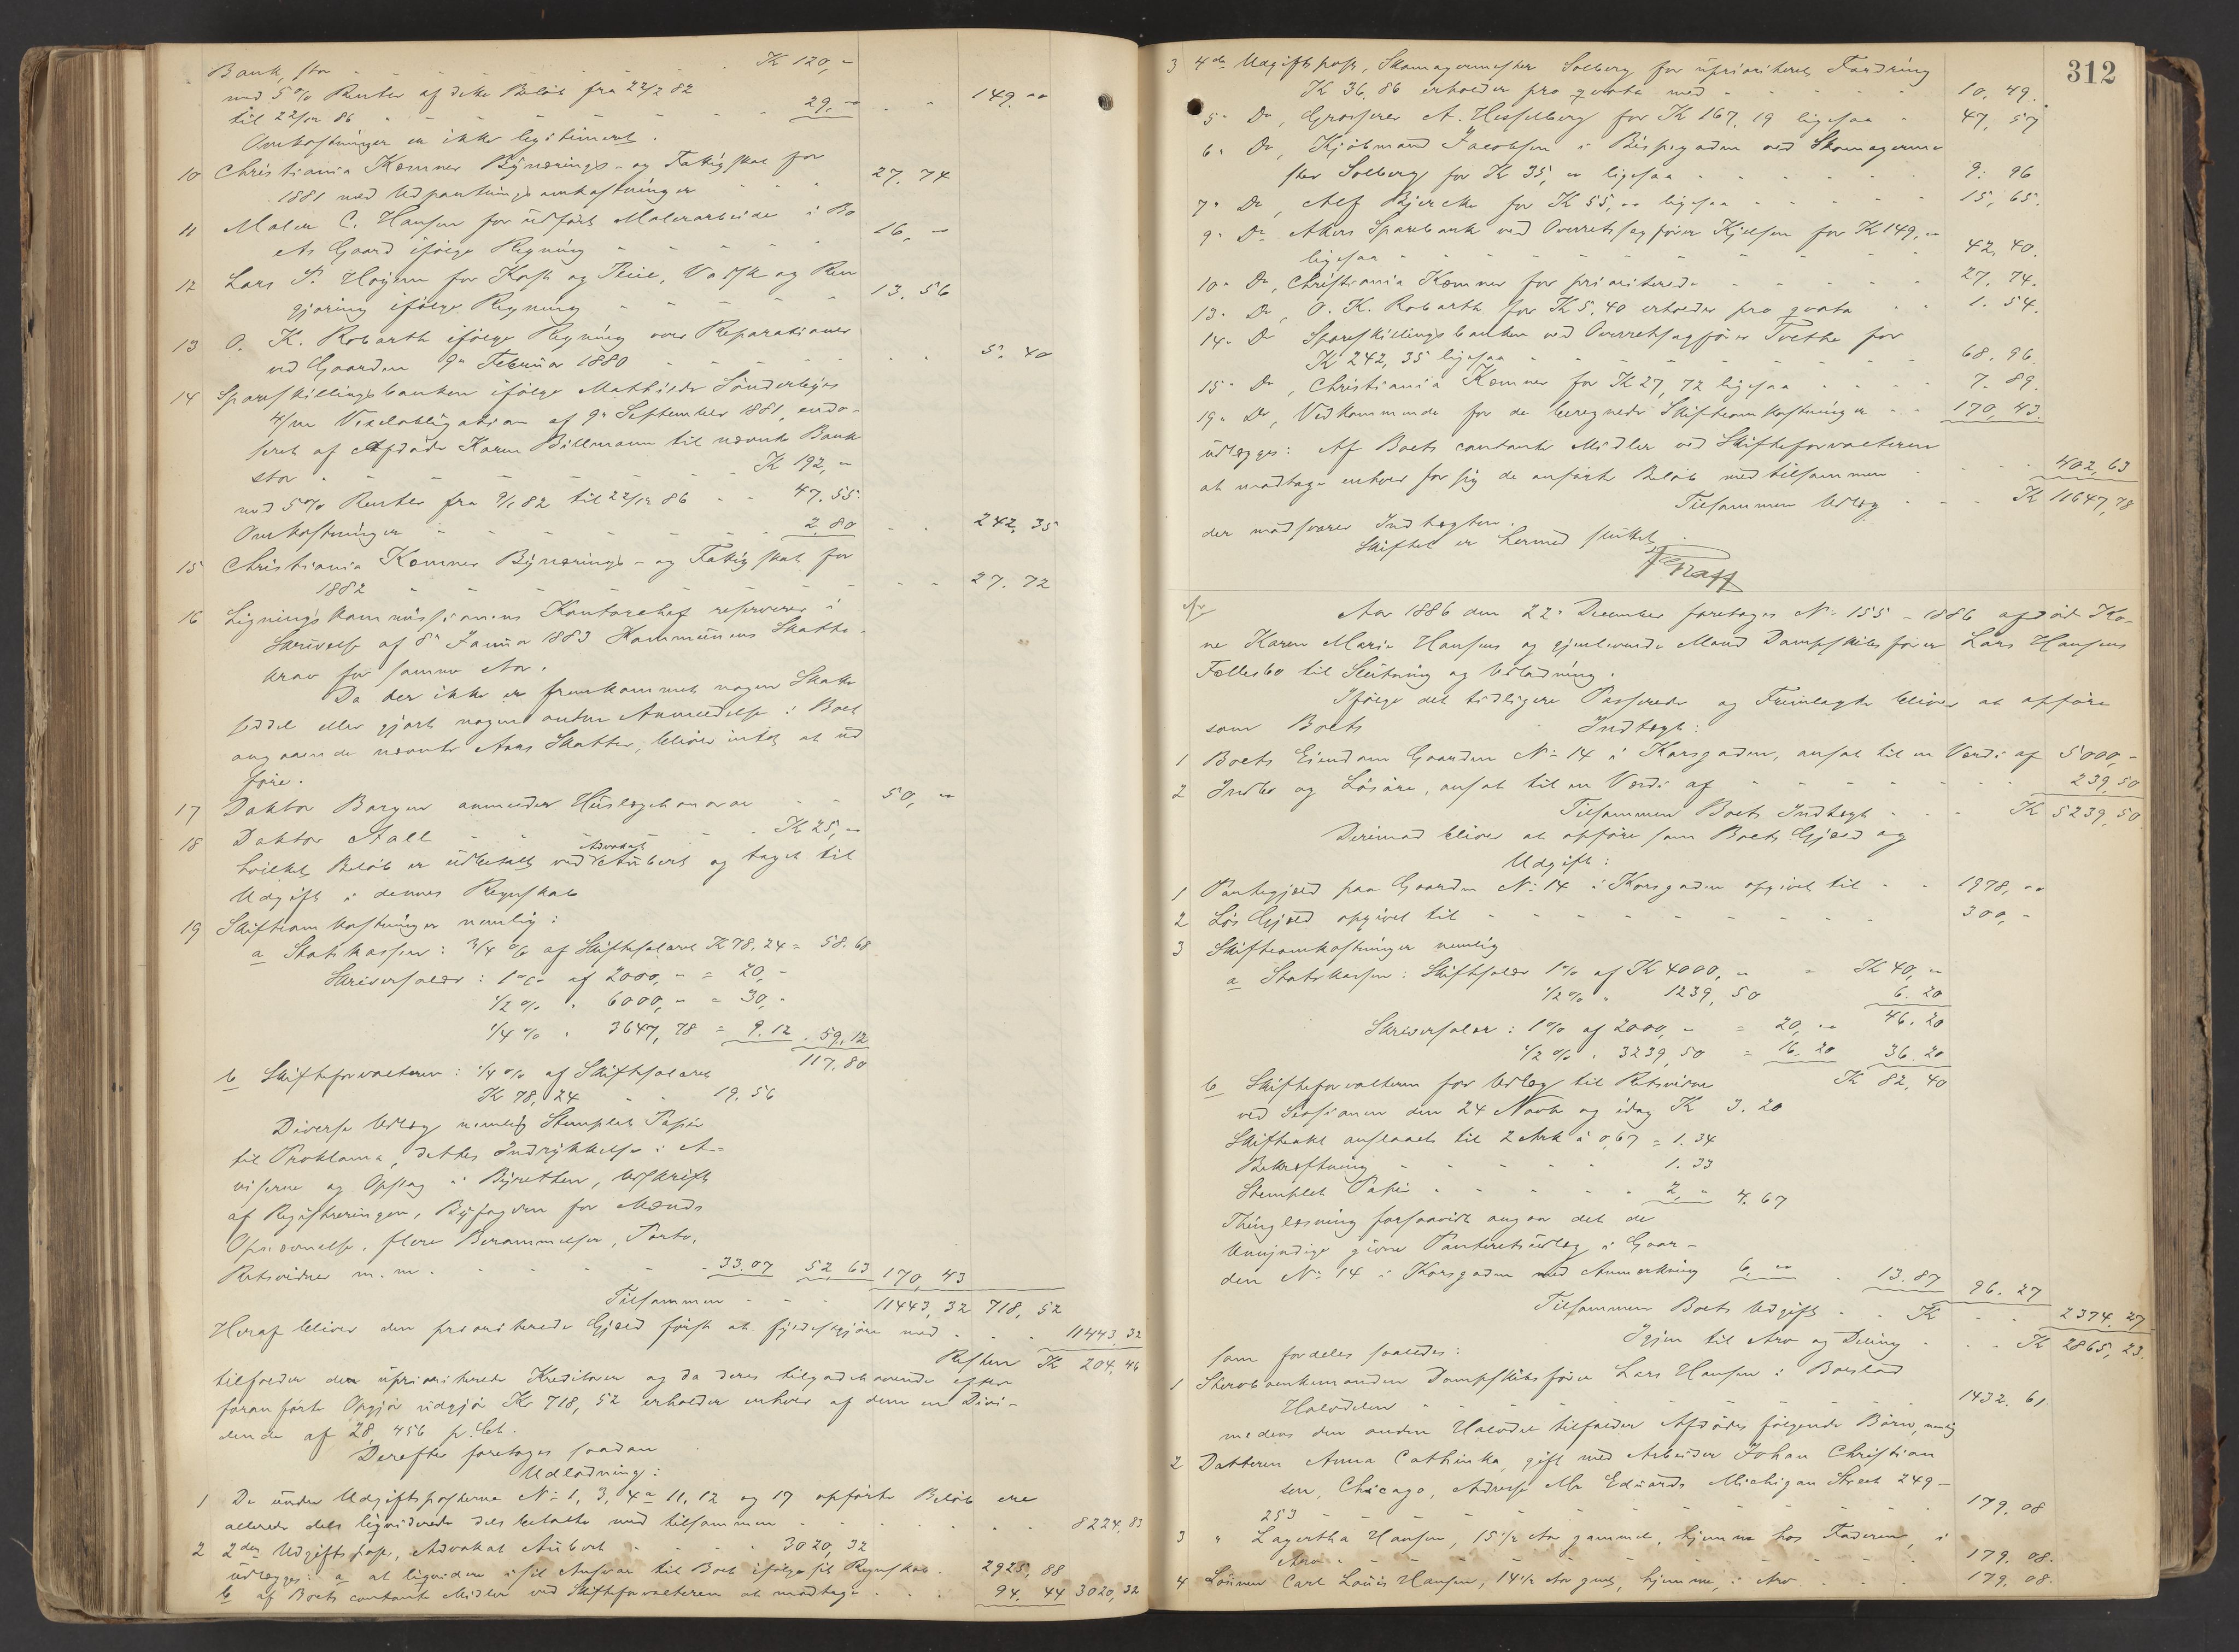 Bank, stor - - - - - - K 120, -
med 5% Renter af dette Beløb fra 22/2 82
til 22/12 86 - - - - - - 29. - - - 149. -
Omkostninger er ikke legitimeret.
10 Christiania Kæmner Bynærings- og Fattigskat for
1881 med Udpantningsomkostninger - - - 27. 74
11 Maler C. Hansen for udført Malerarbeide i Bo
ets Gaard ifølge Regning - - - - - 16, -
12 Lars P. Høyem for Kost og Pleie, Vask og Ren
gjøring ifølge Regning - - - - - 13. 56
13 O. K. Robarth ifølge Regning over Reparationer
ved Gaarden 9de Februar 1880 - - - - 5. 40
14 Spareskillingsbanken ifølge Mathilde Sønderbyes
4/m Vexelobligation af 9de September 1881, endo-
seret af Afdøde Karen Billmann til nævnte Bank
stor - - - - - - K 192, -
med 5% Renter fra 9/1 82 til 22/12 86 - - 47. 55
Omkostninger - - - - - 2. 80 - - 242. 35
15 Christiania Kæmner Bynærings- og Fattigskat for
1882 - - - - - - - - 27. 72
16 Ligningskommissionens Kontorchef reserverer i
Skrivelse af 8de Januar 1883 Kommunens Skatte-
krav for samme Aar.
Da der ikke er fremkommet nogen Skatte
seddel eller gjort nogen anden Anmeldelse i Boet
angaaende nævnte Aars Skatter, bliver intet at ud
føre.
17 Doktor Borgen anmelder Huslægehonorar - - 50, -
18 Doktor Aall - - - - - K 25, -
hvilket Beløb er udbetalt ved Advokat Aubert og taget til
Udgift i dennes Regnskab
19 Skifteomkostninger nemlig:
a Statskassen: 3/4 % af Skiftesalæret K 78. 24 = 58. 68
Skriversalær: 1% af 2000, - = 20, -
1/2 % " 6000, - = 30, -
1/4 % " 3647, 78 = 9. 12 . 59, 12
117. 80
b Skifteforvalteren: 1/4 % af Skiftesalæret
K 78, 24 - - 19. 56
Diverse Udlæg nemlig Stemplet Papir
til Proklama, dettes Indrykkelse i A-
viserne og Opslag i Byretten, Udskrift
af Registreringen, Byfogden for Mænds
Opnævnelse, flere Berammelser, Porto,
Retsvidner m.m. - - - - - 33. 07 52, 63 170, 43
Tilsammen - - - 11443, 32 718, 52
Heraf bliver den prioriterede Gjæld først at fyldestgjøre med - - - 11443. 32
Resten K 204, 46
tilfalder de upriviterede Kreditorer og da deres tilgodehavende efter
foranførte Opgjør udgjør Kr 718, 52 erholder enhver af dem en Divi-
dende af 28, 456 p. Ct.
Derefter foretages saadan
Udlodning:
1 De under Udgiftsposterne No 1, 3, 4a 11, 12 og 17 opførte Beløb ere
allerede dels ligviderede dels betalte med tilsammen - - - - - - 8224, 83
2 2den Udgiftspost, Advokat Aubert - - - - 3020, 32
udlægges: a at ligvidere i sit Ansvar til Boet ifølge sit Regnskab . 2925, 88
b af Boets contante Midler ved Skifteforvalteren at modtage - - 94. 44 3020, 32
312
3 4de Udgiftspost, Skomagermester Solberg for uprioriteret Fordring
K 36. 86 erholder pro qvota med - - - - - - 10. 49.
5- Do, Grosserer A. Hesselberg for K 167. 19 ligesaa - 47, 57
6- Do, Kjøbmand Jacobsen i Bispegaden ved Skomagerme
ster Solberg for K 35, - ligesaa - - - - - - 9. 96
7- Do, Alf Bjercke for K 55, - ligesaa - - - - - 15, 65.
9- Do Akers Sparebank ved Overretssagfører Kjelsen for K 149, -
ligesaa - - - - - - - - - - 42, 40.
10- Do, Christiania Kæmner for prioriterede - - - - - 27. 74.
13- Do, O. K. Robarth for K 5, 40 erholder pro qvota - - 1. 54.
14- Do Spareskillingsbanken ved Overretssagfører Tvethe for
K 242, 35 ligesaa - - - - - - - - 68. 96.
15- Do, Christiania Kæmner for K 27, 72 ligesaa - - - - 7. 89.
19- Do, Vedkommende for de beregnede Skifteomkostninger - - 170, 43.
udlægges: Af Boets contante Midler ved Skifteforvalteren
at modtage enhver for sig de anførte Beløb med tilsammen - - - - 402, 63
Tilsammen Udlæg - - - K 11647, 78
der modsvarer Indtægten.
Skiftet er hermed sluttet.
Aar 1886 den 22de December foretoges No 155 - 1886 afdød Ko-
ne Karen Marie Hansens og gjenlevende Mand Dampskibsfører Lars Hansens
Fællesbo til Slutning og Udlodning.
Ifølge det tidligere Passerede og Fremlagte bliver at opføre
som Boets Indtægt:
1 Boets Eiendom Gaarden No 14 i Korsgaden, ansat til en Værdi af 5000, -
2 Indbo og Løsøre, ansat til en Værdi af - - - - - - - 239, 50
Tilsammen Boets Indtægt - - - K 5239, 50
Derimod bliver at opføre som Boets Gjæld og
Udgift:
1 Pantegjæld paa Gaarden No 14 i Korsgaden opgivet til - - 1978, -
2 Løs Gjæld opgivet til - - - - - - - - - 300, -
3 Skifteomkostninger nemlig
a Statskassen: Skiftesalær 1% af K 4000, - = K 40, -
1/2 % " 1239, 50 6. 20
46. 20
Skriversalær: 1% af 2000, - = 20, -
1/2 % " 3239, 50 = 16. 20 36. 20
K 82, 40
b Skifteforvalteren for Udlæg til Retsvidner
ved Sessionen den 24 Novbr og idag K 3. 20
Skifteakt anslaaet til 2 Ark á 0,67 = 1. 34
Bekræftning - - - - - 1. 33
Stemplet Papir - - - - - 2, - 4. 67
Thinglæsning forsaavidt angaar det de
Umyndige givne Panteretsudlæg i Gaar-
den No 14 i Korsgaden med Anmerkning 6, - - 13. 87 96. 27
Tilsammen Boets Udgift - - K - - 2374. 27
Igjen til Arv og Deling - - - K 2865, 23.
som fordeles saaledes:
1 Sterbboenkemanden Dampskibsfører Lars Hansen i Boeslod
Halvdelen - - - - - - - - - 1432. 61
medens den anden Halvdel tilfalder Afdødes følgende Børn, nemlig
2 Datteren Anna Cathinka, gift med Arbeider Johan Christian
sen, Chicago, Adresse Mr Eduards Michigan Street 249-
253 - - - - - - - - - 179. 08
3 " Lagertha Hansen, 15 1/2 Aar gammel, hjemme hos Faderen, i
Arv - - - - - - - - - 179. 08.
4 Sønnen Carl Louis Hansen, 14 1/2 Aar gml, hjemme, i Arv - - - 179. 08.